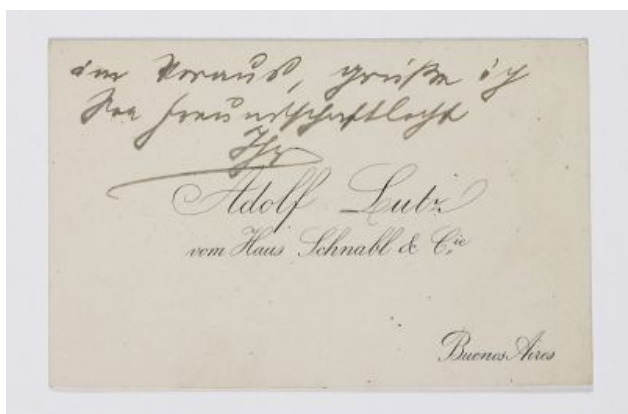 im Voraus, grüße ich
Sie freundschaftlichst
Ihr
Adolf Lutz
vom Haus Schnabl & Cie
Buenos Aires